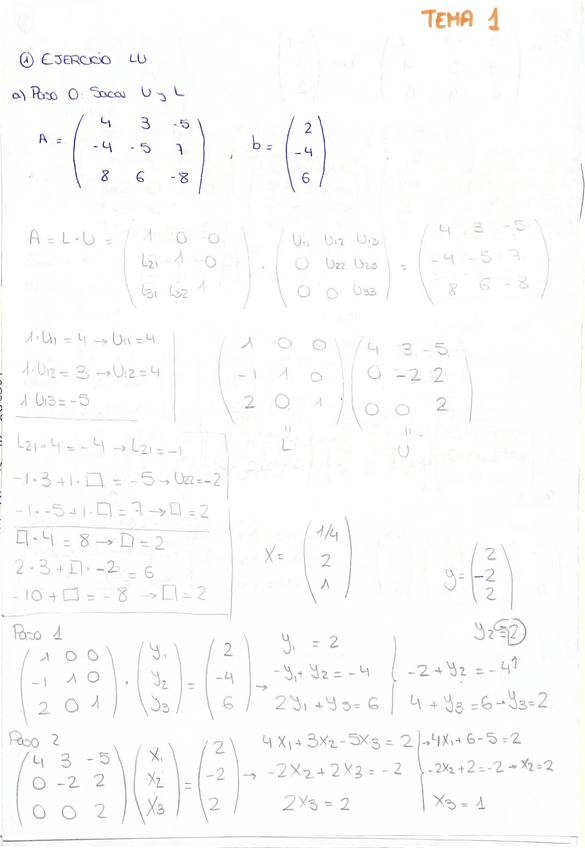 TEMA 1
① EJERCICIO LU
a) Paso 0: Sacar U y L
A = ( 4 3 -5 ; -4 -5 7 ; 8 6 -8 ) , b = ( 2 ; -4 ; 6 )
A = L · U = ( 1 0 0 ; L21 1 0 ; L31 L32 1 ) · ( U11 U12 U13 ; 0 U22 U23 ; 0 0 U33 ) = ( 4 3 -5 ; -4 -5 7 ; 8 6 -8 )
1·U11 = 4 → U11 = 4
1·U12 = 3 → U12 = 4
1 U13 = -5
( 1 0 0 ; -1 1 0 ; 2 0 1 ) ( 4 3 -5 ; 0 -2 2 ; 0 0 2 )
= L
= U
L21·4 = -4 → L21 = -1
-1·3 + 1·□ = -5 → U22 = -2
-1·-5 + 1·□ = 7 → □ = 2
□·4 = 8 → □ = 2
2·3 + □·-2 = 6
-10 + □ = -8 → □ = 2
X = ( 1/4 ; 2 ; 1 )
y = ( 2 ; -2 ; 2 )
Paso 1
( 1 0 0 ; -1 1 0 ; 2 0 1 ) · ( y1 ; y2 ; y3 ) = ( 2 ; -4 ; 6 ) →
y1 = 2
-y1 + y2 = -4
2y1 + y3 = 6
y2 = -2
-2 + y2 = -4
4 + y3 = 6 → y3 = 2
Paso 2
( 4 3 -5 ; 0 -2 2 ; 0 0 2 ) ( X1 ; X2 ; X3 ) = ( 2 ; -2 ; 2 ) →
4X1 + 3X2 - 5X3 = 2 → 4X1 + 6 - 5 = 2
-2X2 + 2X3 = -2 → -2X2 + 2 = -2 → X2 = 2
2X3 = 2
X3 = 1